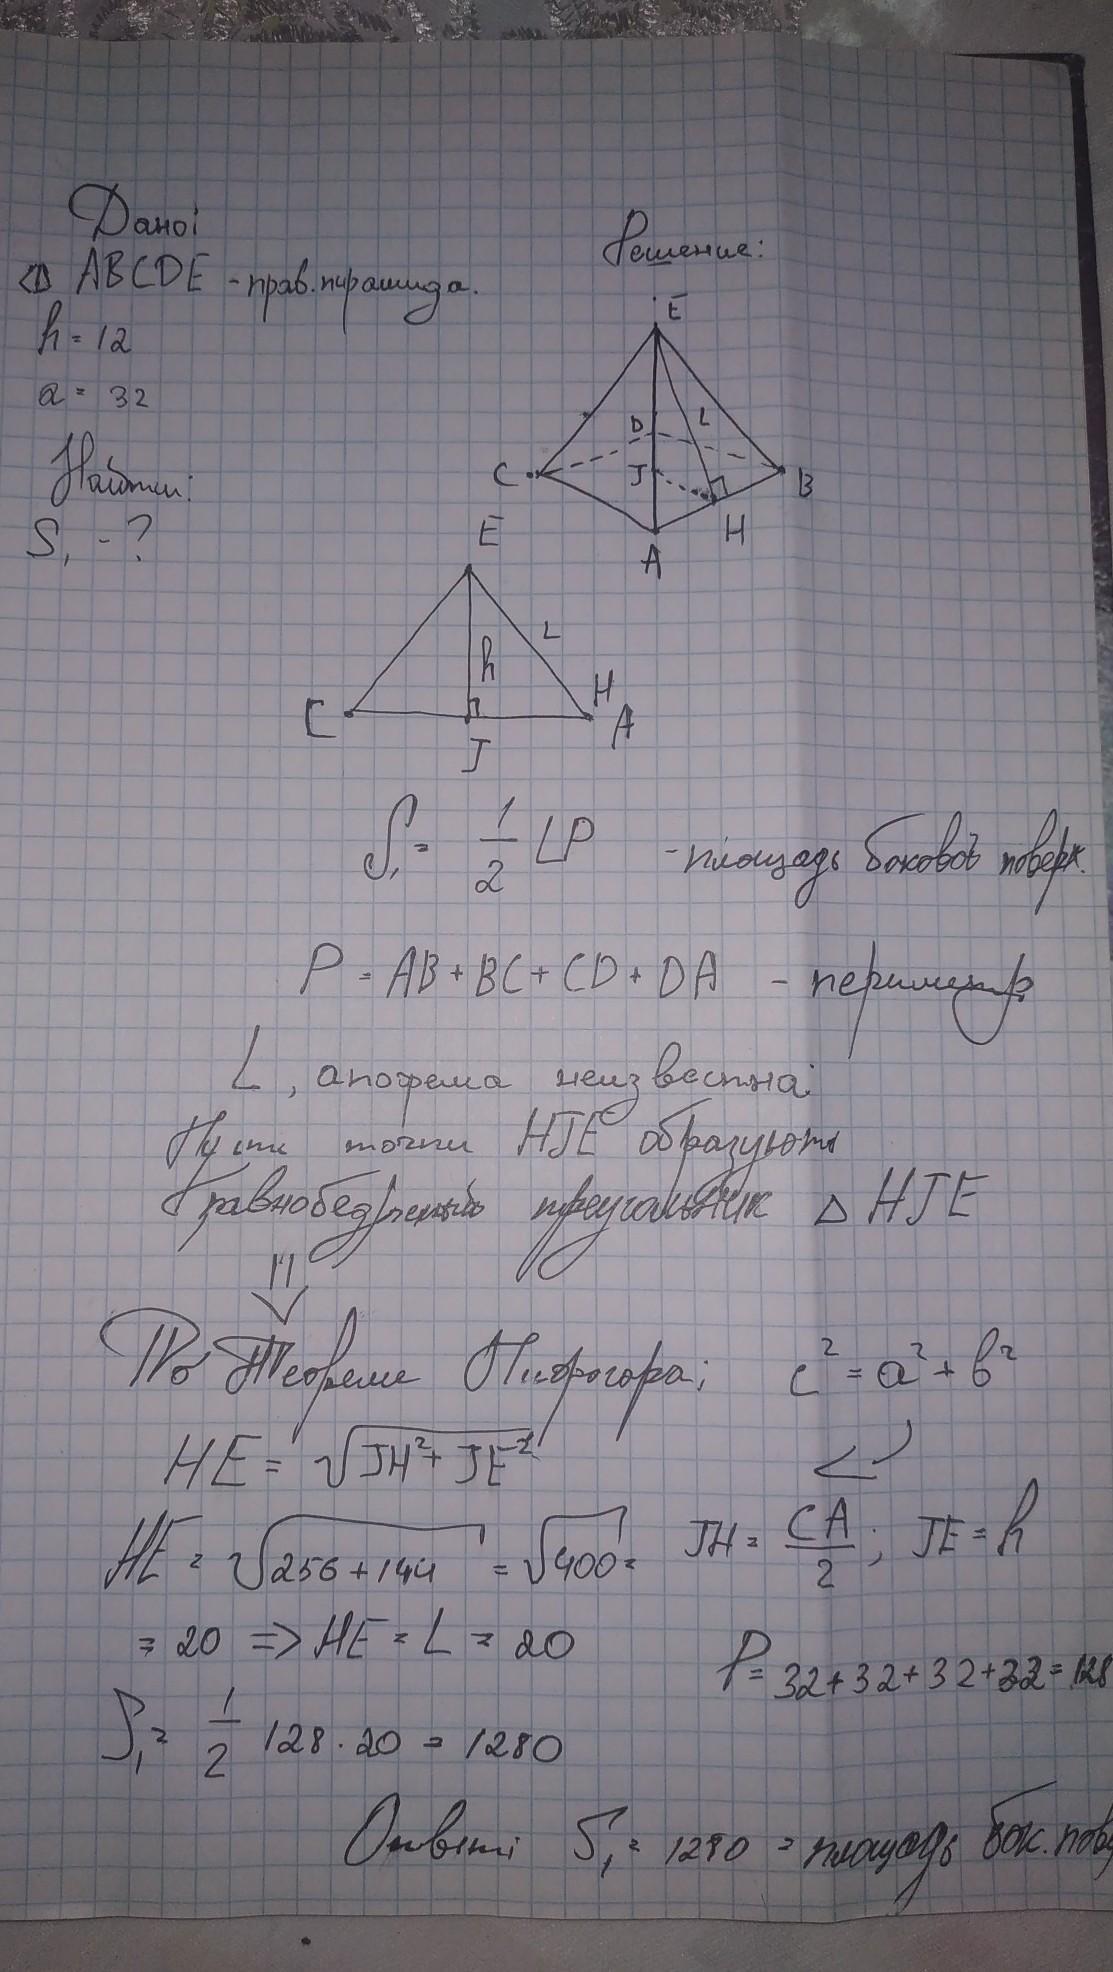 Дано:
ABCDE - прав. пирамида.
h = 12
a = 32
Найти:
S₁ - ?
Решение:
E
D
L
C
J
B
H
A
E
L
h
H
C
J
A
S₁ = 1/2 LP - площадь боковой поверх.
P = AB + BC + CD + DA - периметр
L, апофема неизвестна:
Пусть точки HJE образуют
равнобедренный треугольник △ HJE
По Теореме Пифогора; c² = a² + b²
HE = √(JH² + JE²)
HE = √(256 + 144) = √400 =
JH = CA/2 ; JE = h
= 20 => HE = L = 20
P = 32 + 32 + 32 + 32 = 128
S₁ = 1/2 128 · 20 = 1280
Ответ: S₁ = 1280 = площадь бок. пов